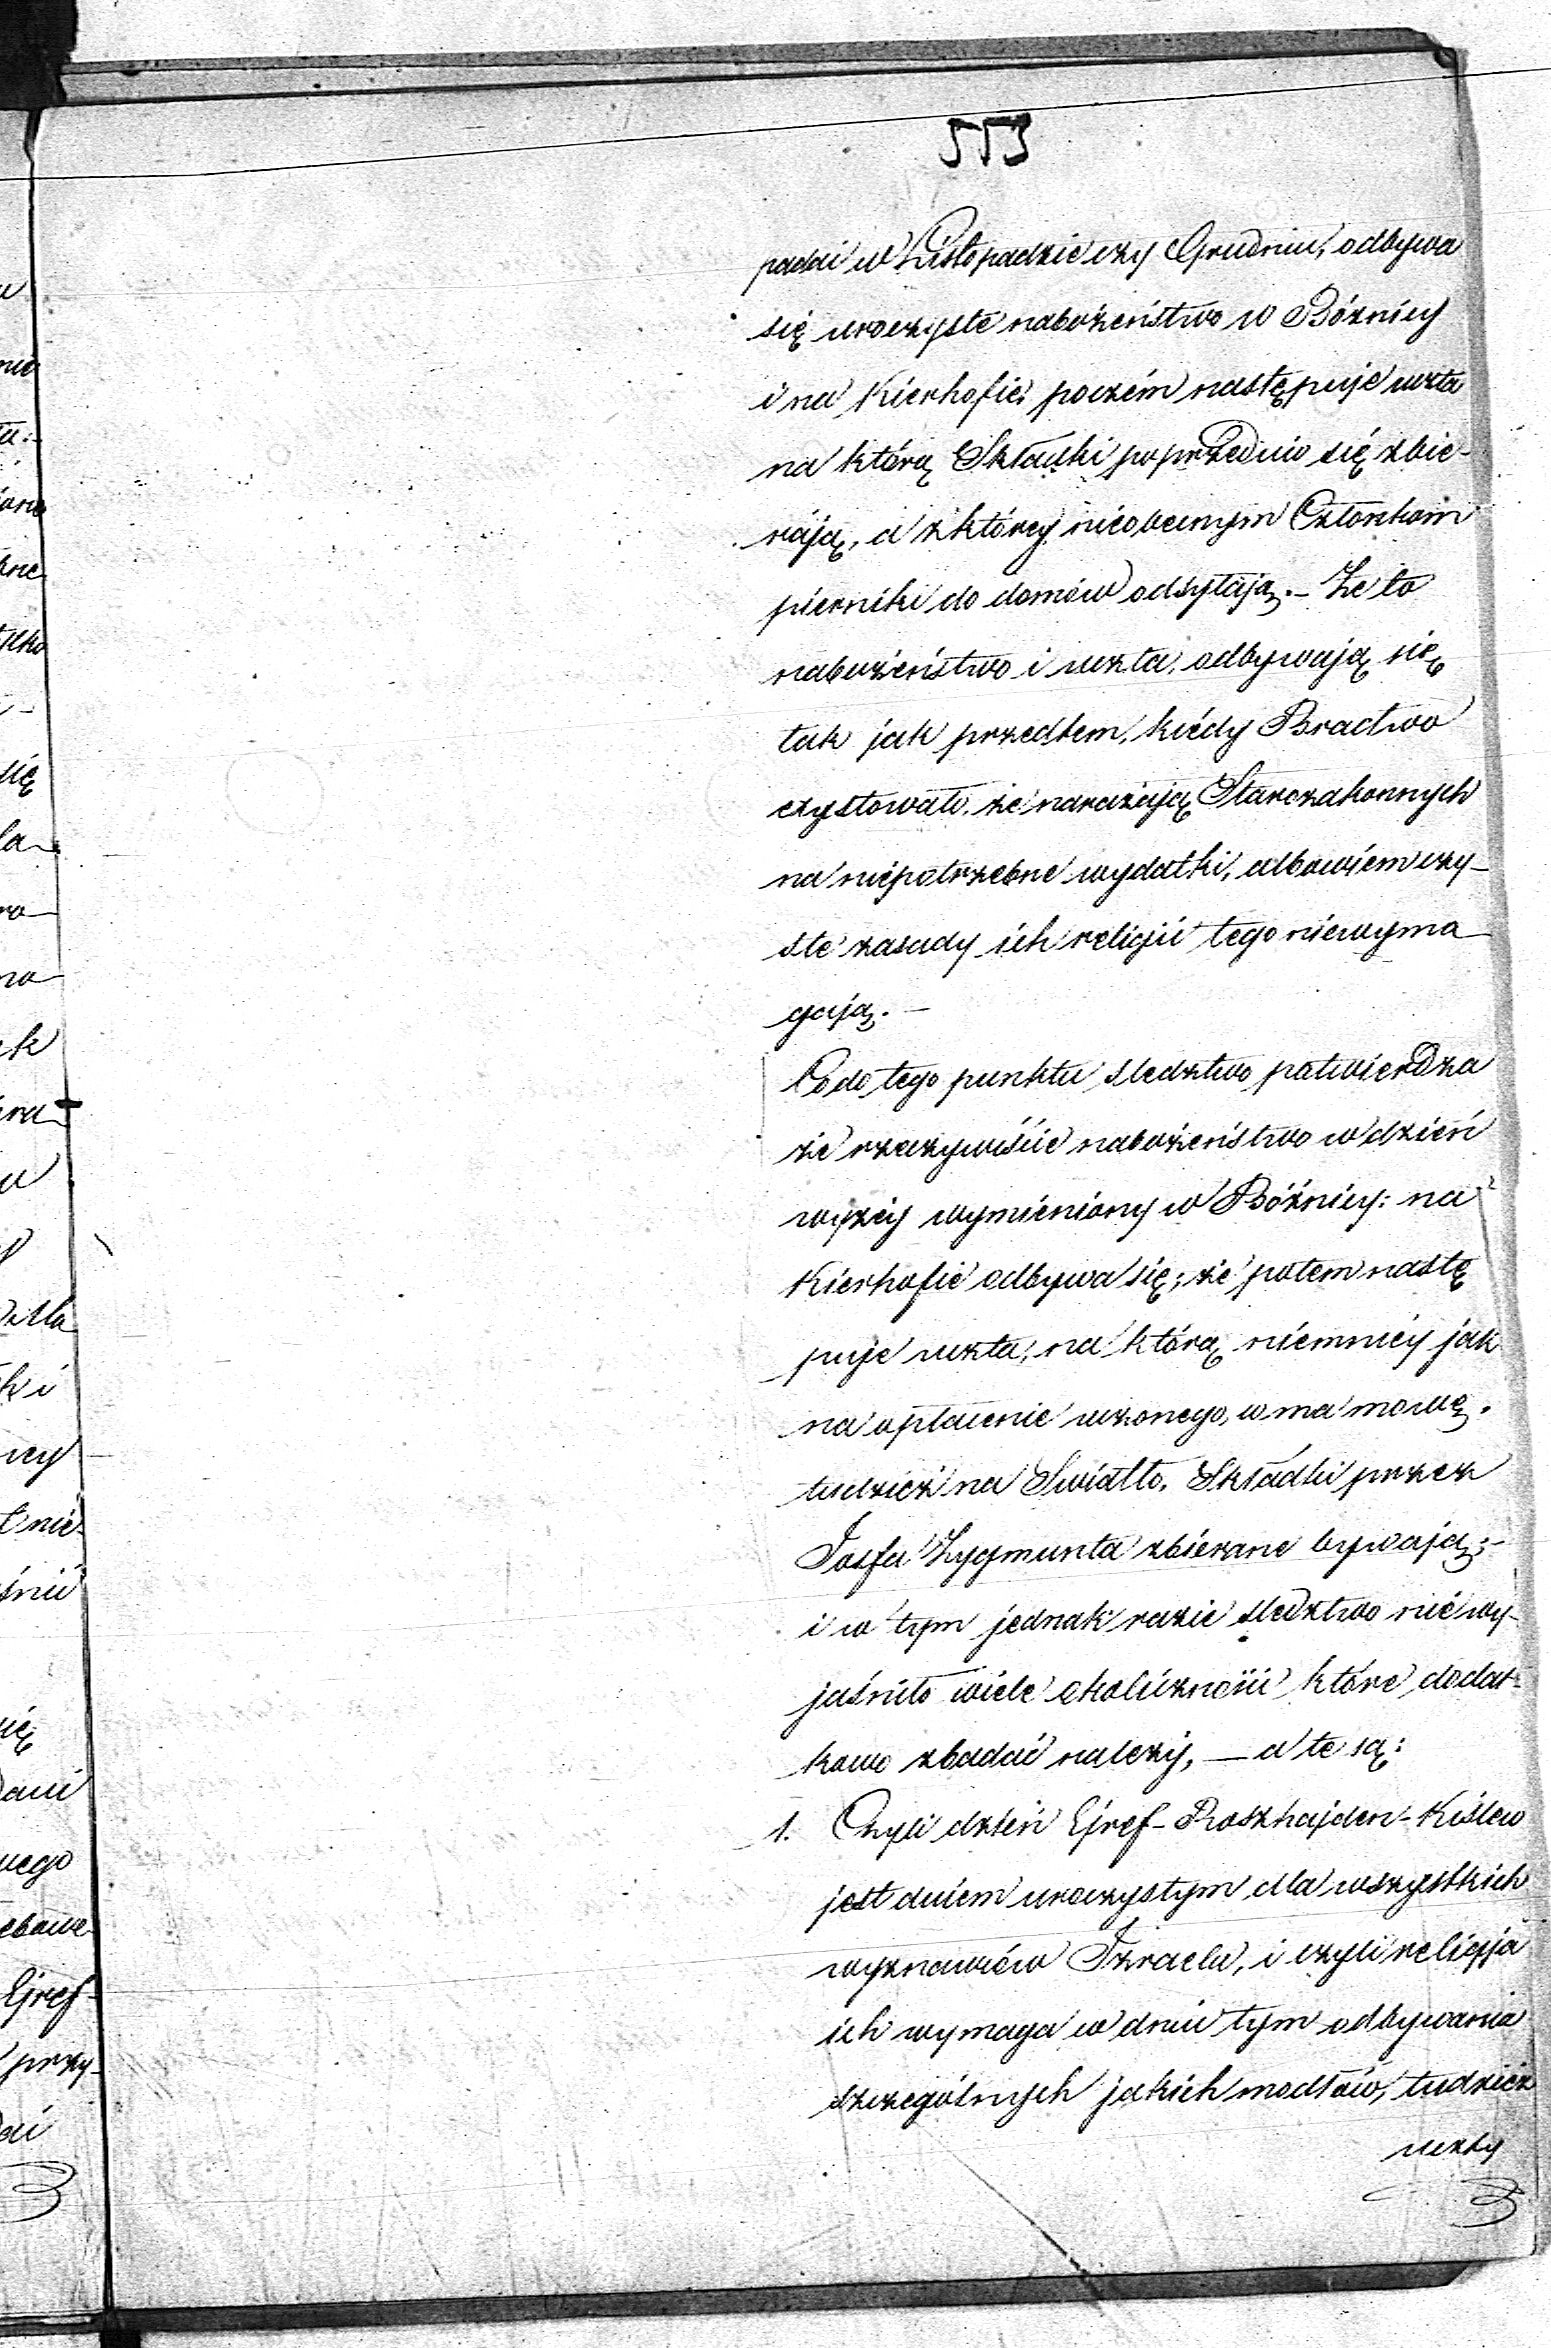 553
padai w Listopadzie czy Grudniu, odbywa
się uroczyste nabożeństwo w Bóżnicy
i na Kierhofie, poczém następuje uczta
na którą Składki poprzednio się zbie-
rają, a z którey nieobecnym Członkom
pierniki do domów odsyłają. – Że to
nabożeństwo i uczta, odbywają się
tak jak przedtem, kiédy Bractwo
exystowało, że narażają Starozakonnych
na niepotrzebne wydatki, albowiem czy-
ste zasady ich religii tego niewyma-
gają. –
Co do tego punktu śledztwo potwierdza
że rzeczywiście nabożeństwo w dzień
wyżéy wymieniony w Bóżnicy i na
Kierhofie odbywa się; że potem nastę
puje uczta, na którą niemniéy jak
na opłacenie uczonego, co ma mowę,
tudzież na Swiatło, Składki przez
Josfa Zygmunta zbierane bywają; –
i w tym jednak razie śledztwo nie wy-
jaśniło wiele okoliczności które dodat-
kowo zbadać należy, — a te są:
1. Czyli dzień Ejref-Roszhajden-Kislew
jest dniem uroczystym dla wszystkich
wyznawców Izraela, i czyli religja
ich wymaga w dniu tym odbywania
szczególnych jakich modłów, tudzież
uczty